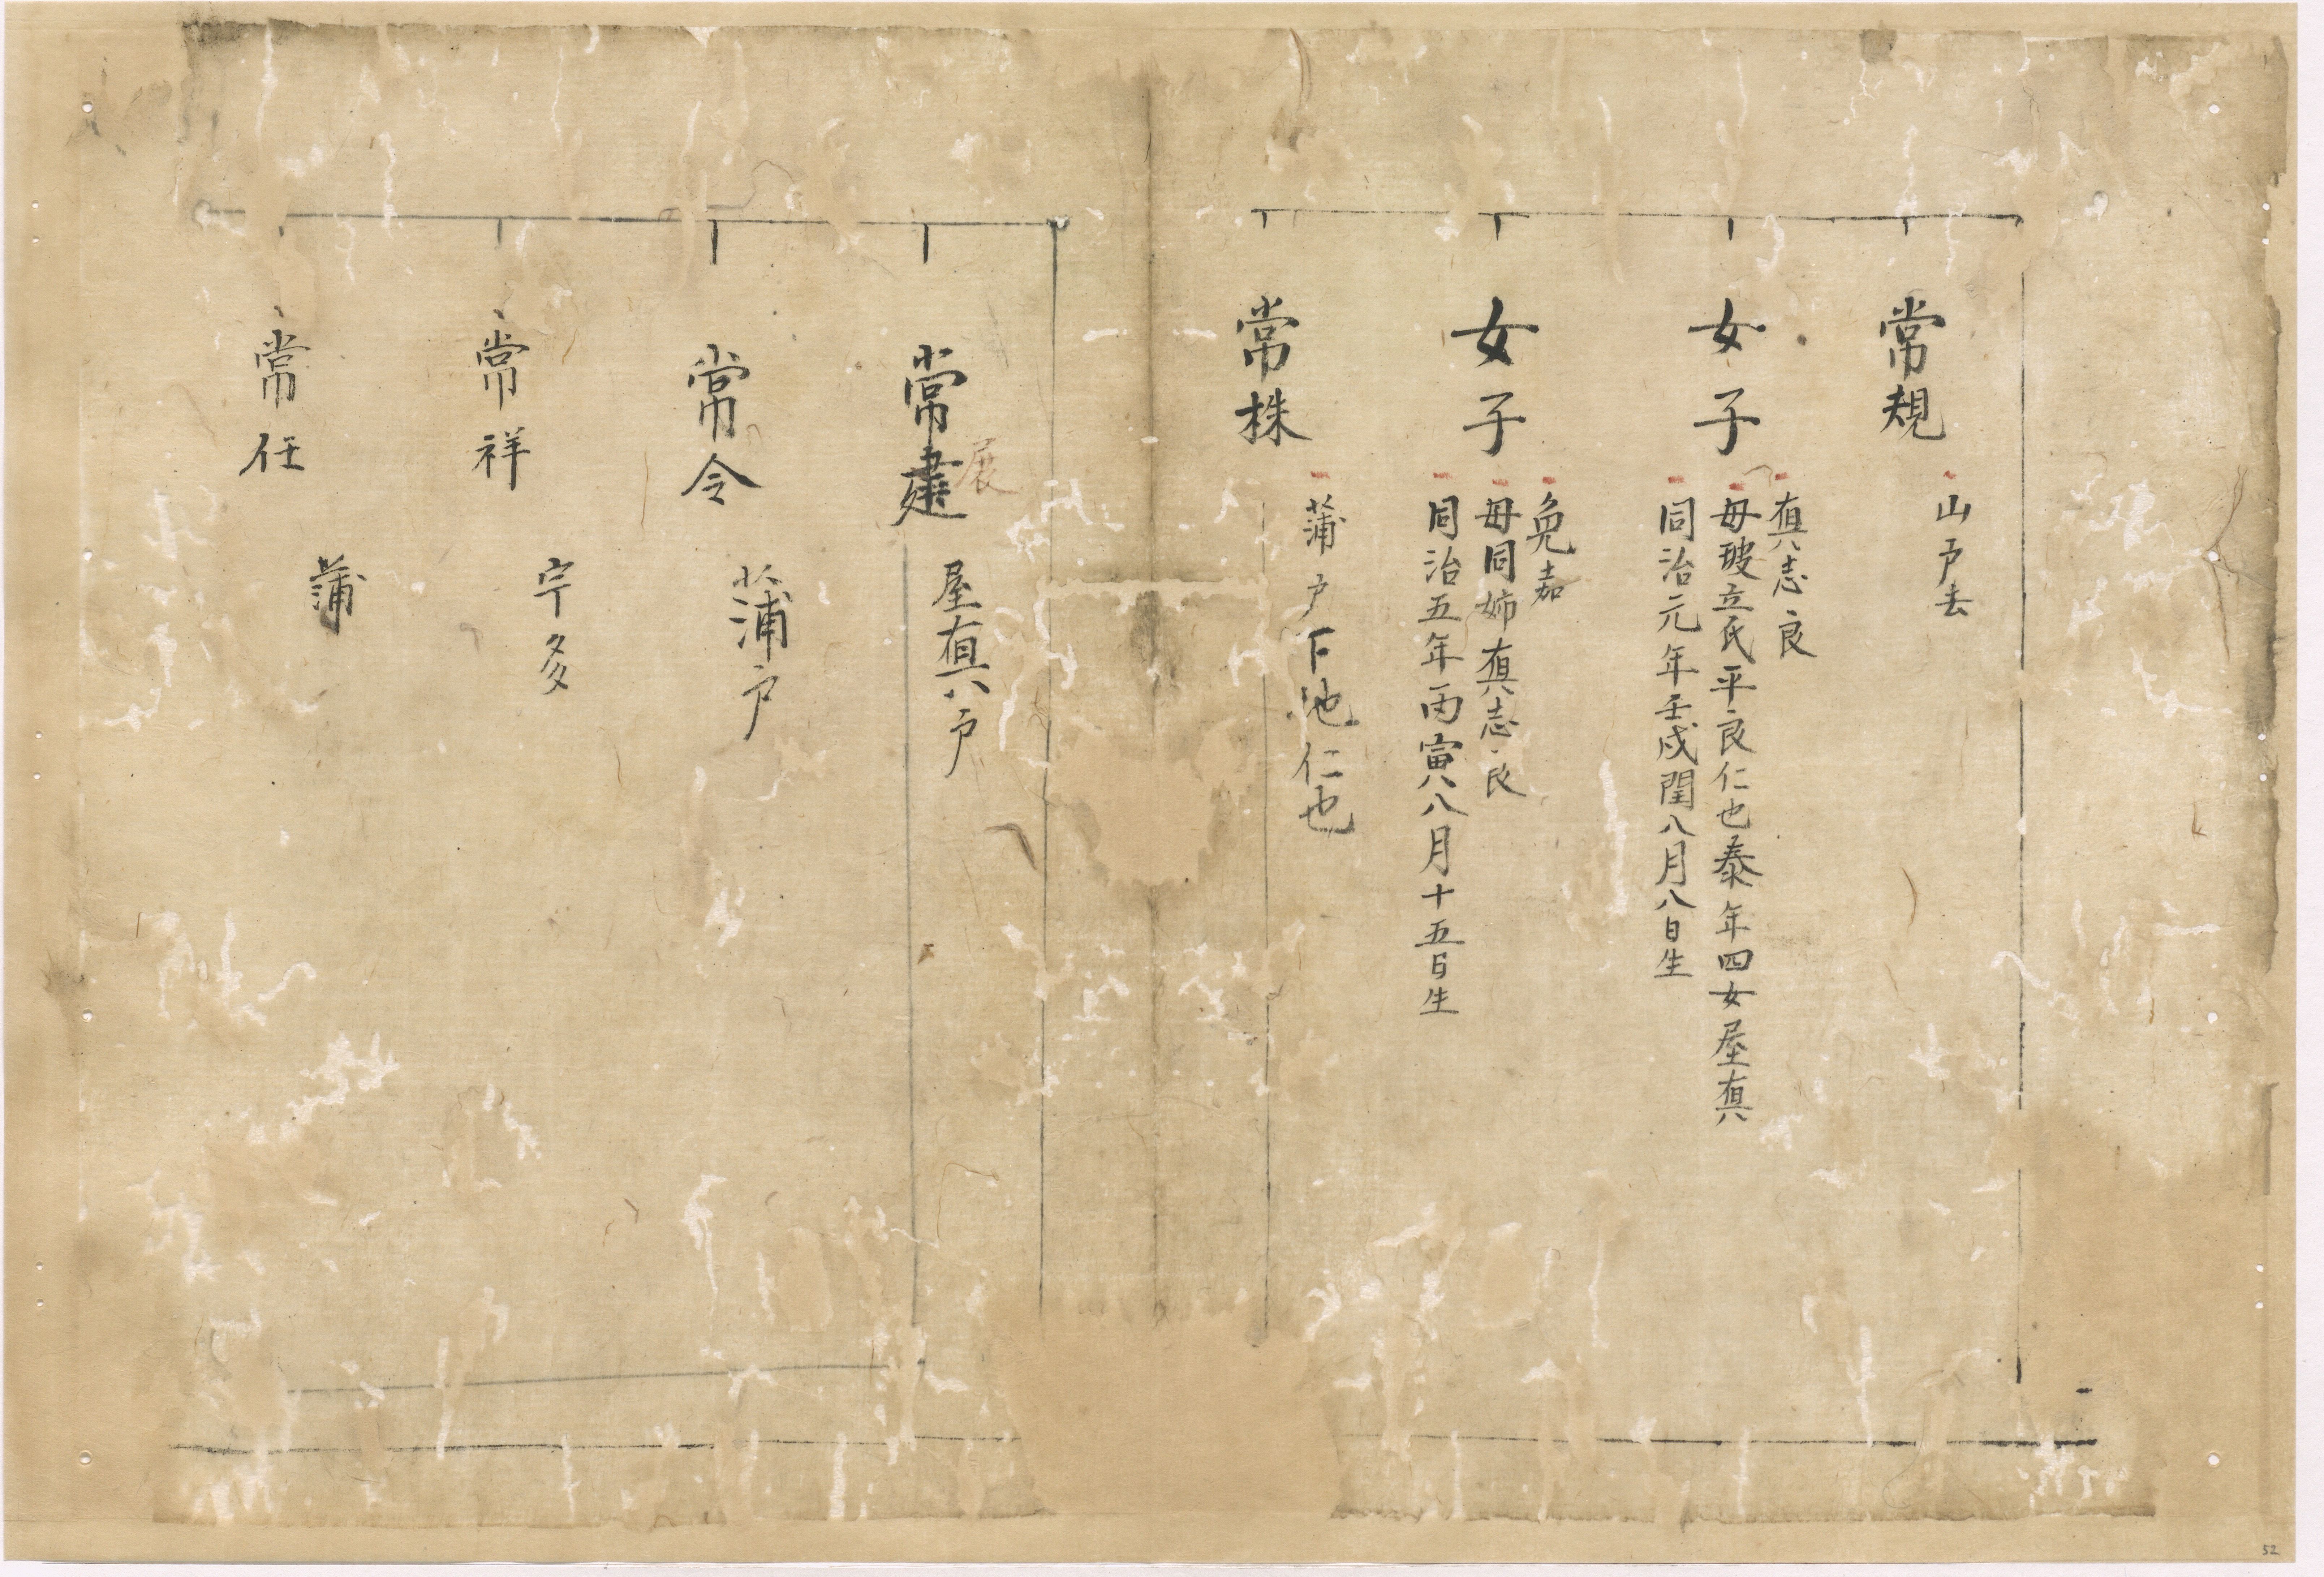 常規
山戸去
女子
真志良
母玻立氏平良仁也泰年四女屋真
同治元年壬戌閏八月八日生
女子
免嘉
母同姉真志良
同治五年丙寅八月十五日生
常株
蒲戸下池仁也
常建
展
屋真戸
常令
蒲戸
常祥
宇多
常任
蒲
52